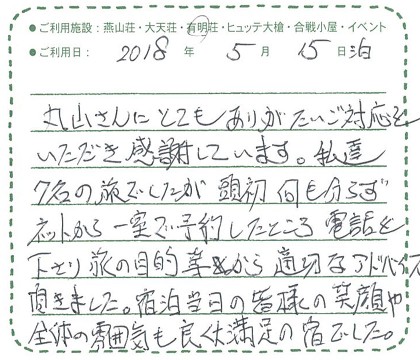 ●ご利用施設：燕山荘・大天荘・有明荘・ヒュッテ大槍・合戦小屋・イベント
●ご利用日： 2018 年 5 月 15 日泊
丸山さんにとてもありがたいご対応を
いただき感謝しています。私達
7名の旅でしたが 頭初 何も分らず
ネットから 一室で予約したところ 電話を
下さり 旅の目的 等から 適切なアドバイス
頂きました。宿泊当日の皆様の笑顔や
全体の雰囲気も良く大満足の宿でした。